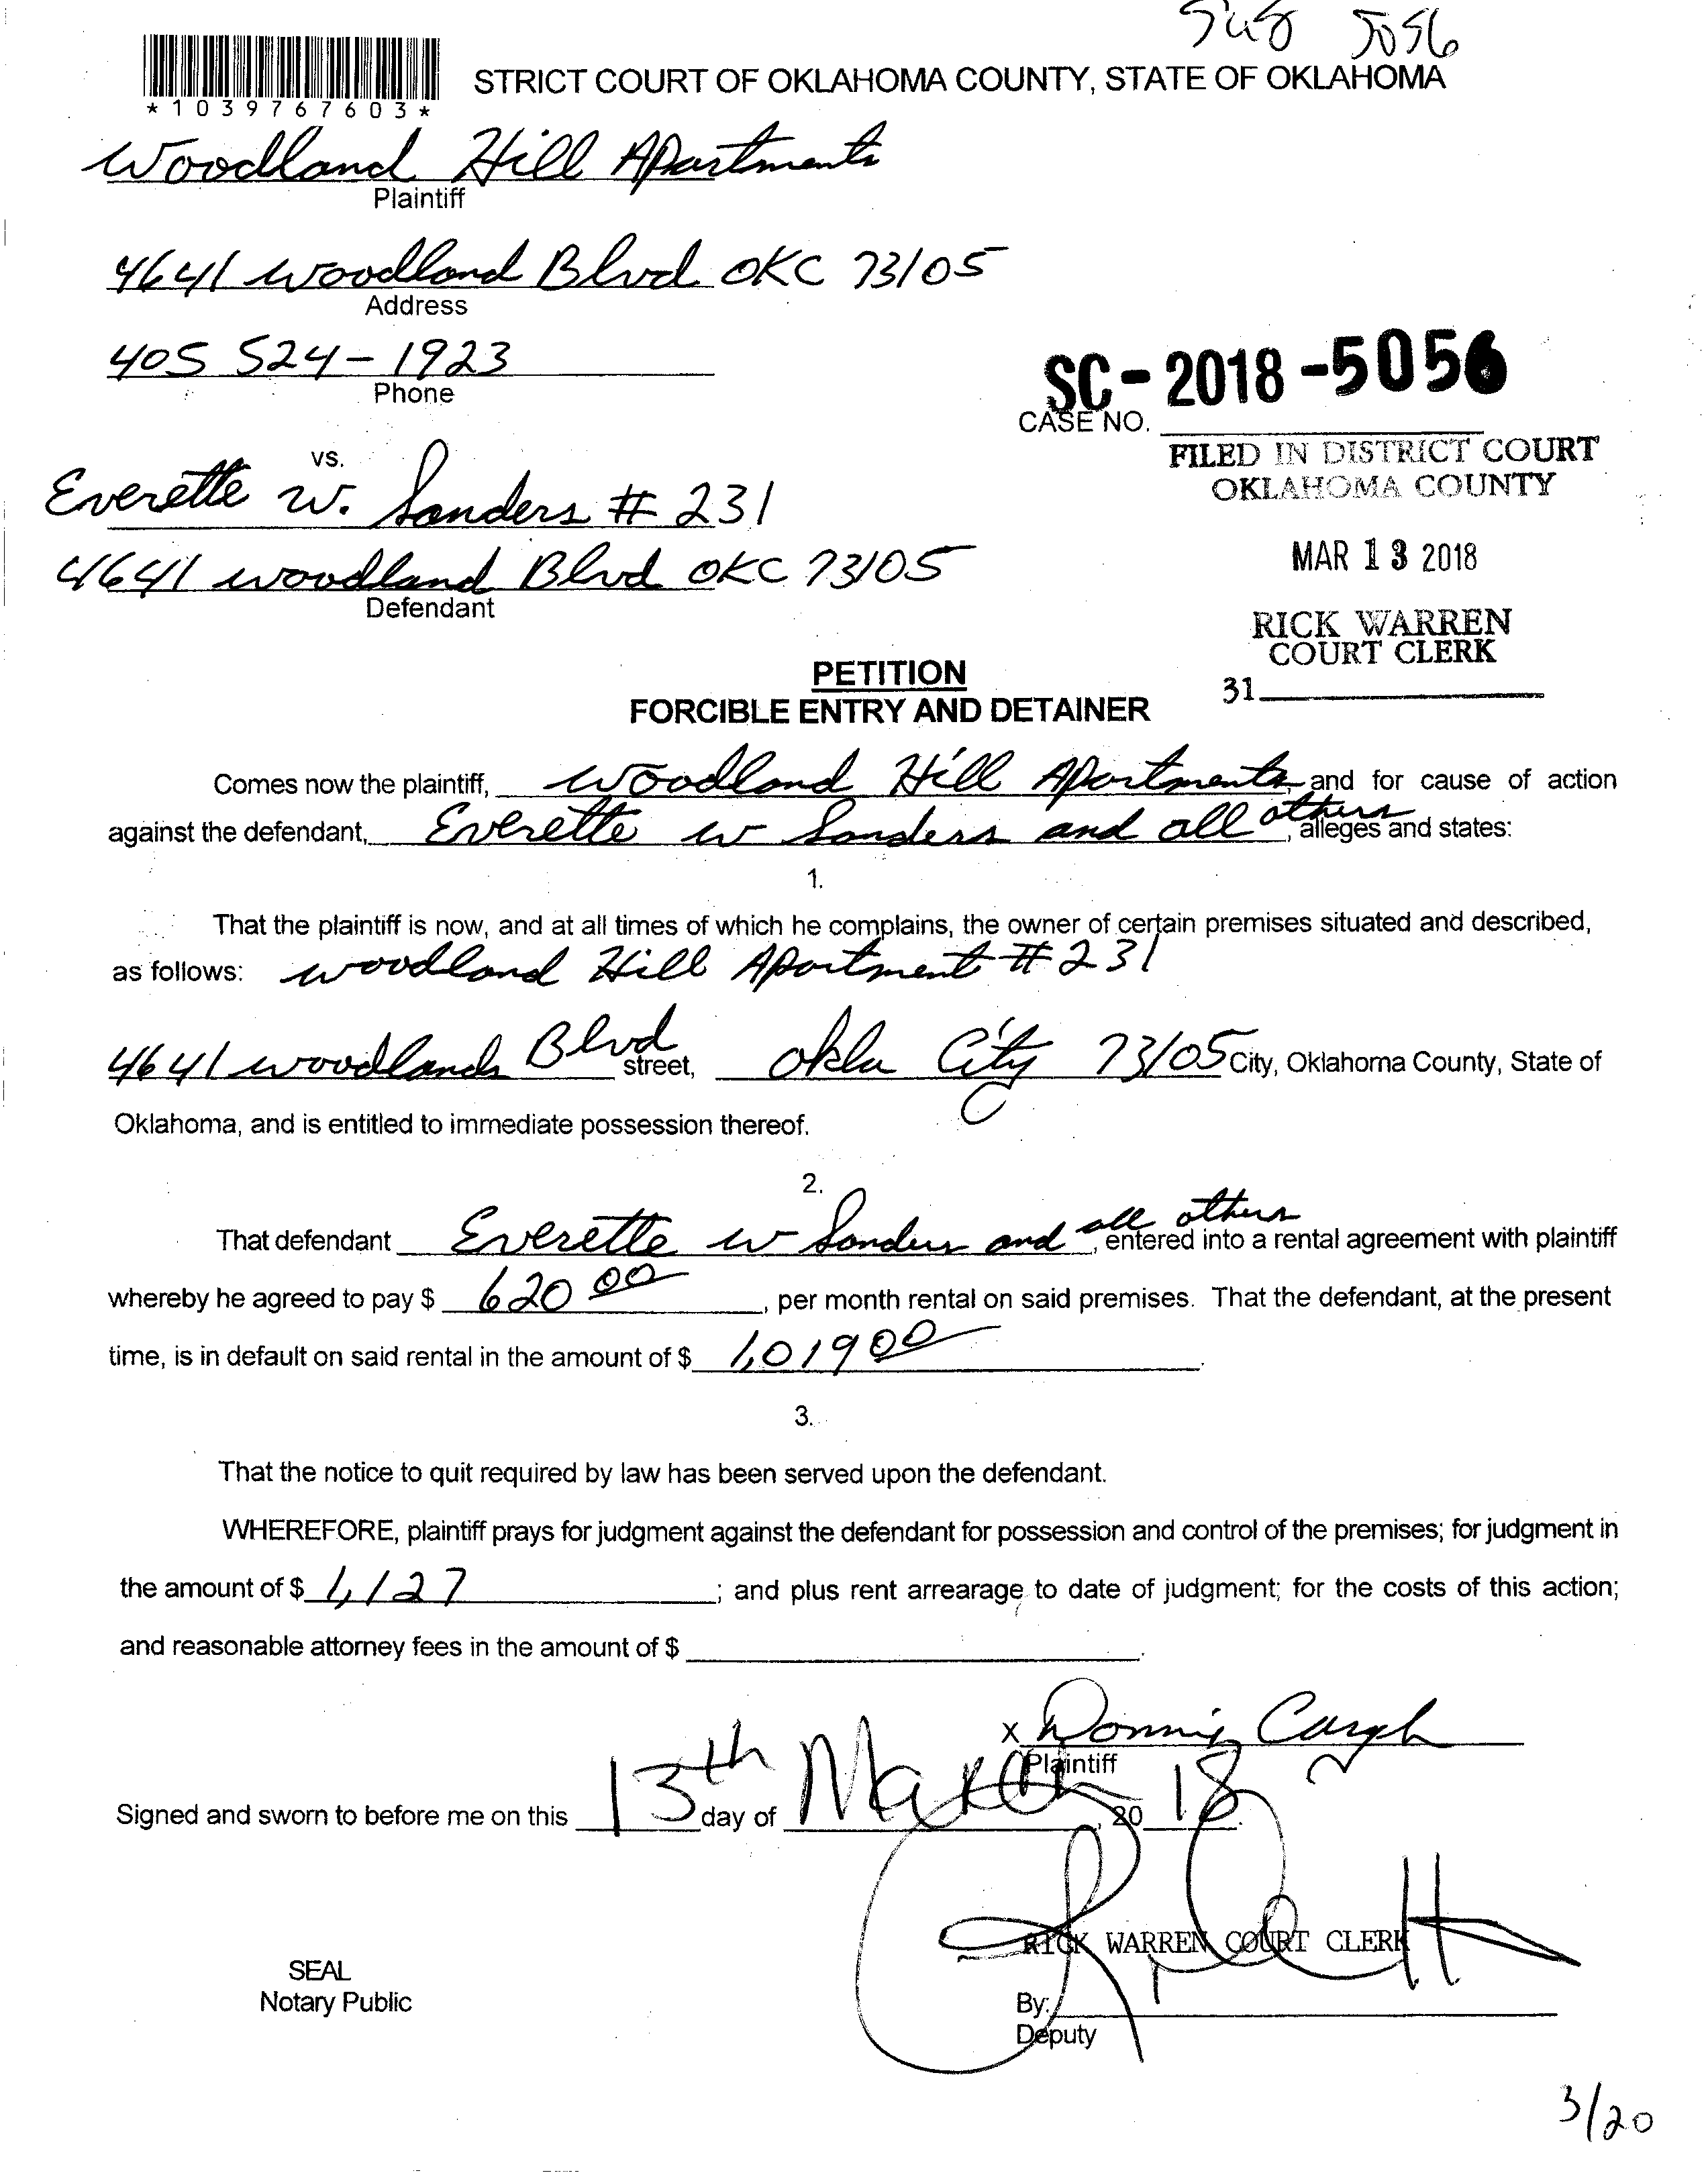 5056
*1039767603*
STRICT COURT OF OKLAHOMA COUNTY, STATE OF OKLAHOMA
Woodland Hill Apartments
Plaintiff
4641 Woodland Blvd OKC 73105
Address
405 524-1923
Phone
SC-2018-5056
CASE NO.
FILED IN DISTRICT COURT
OKLAHOMA COUNTY
vs.
Everette W. Sanders # 231
MAR 13 2018
4641 woodland Blvd OKC 73105
Defendant
RICK WARREN
COURT CLERK
31
PETITION
FORCIBLE ENTRY AND DETAINER
Comes now the plaintiff, Woodland Hill Apartments and for cause of action
against the defendant, Everette W Sanders and all others, alleges and states:
1.
That the plaintiff is now, and at all times of which he complains, the owner of certain premises situated and described,
as follows: Woodland Hill Apartment # 231
4641 woodlands Blvd street, Okla City 73105 City, Oklahoma County, State of
Oklahoma, and is entitled to immediate possession thereof.
2.
That defendant Everette W Sanders and all others, entered into a rental agreement with plaintiff
whereby he agreed to pay $ 620 00, per month rental on said premises. That the defendant, at the present
time, is in default on said rental in the amount of $ 1,019 00.
3.
That the notice to quit required by law has been served upon the defendant.
WHEREFORE, plaintiff prays for judgment against the defendant for possession and control of the premises; for judgment in
the amount of $ 1,127; and plus rent arrearage to date of judgment; for the costs of this action;
and reasonable attorney fees in the amount of $.
X
Plaintiff
Signed and sworn to before me on this 13th day of March, 20 18.
RICK WARREN COURT CLERK
SEAL
Notary Public
By:
Deputy
3/20